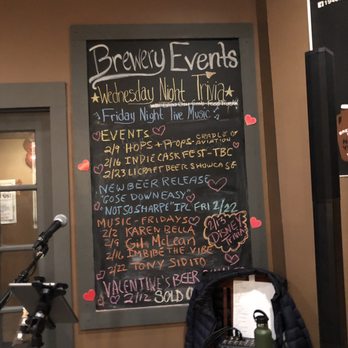 Brewery Events
Wednesday Night Trivia
Friday Night live Music
EVENTS
2/9 HOPS + PROPS - CRADLE OF AVIATION
2/16 INDIE CASK FEST - TBC
2/23 LI CRAFT BEER SHOWCASE
NEW BEER RELEASE
"GOSE DOWN EASY"
"NOT SO SHARPE" IPL FRI 2/22
MUSIC - FRIDAYS
2/2 KAREN BELLA
2/8 Gil McLean
2/16 IMBIBE THE VIBE
2/22 TONY SIDITO
DISNEY
TRIVIA
VALENTINE'S BEER
2/12 SOLD